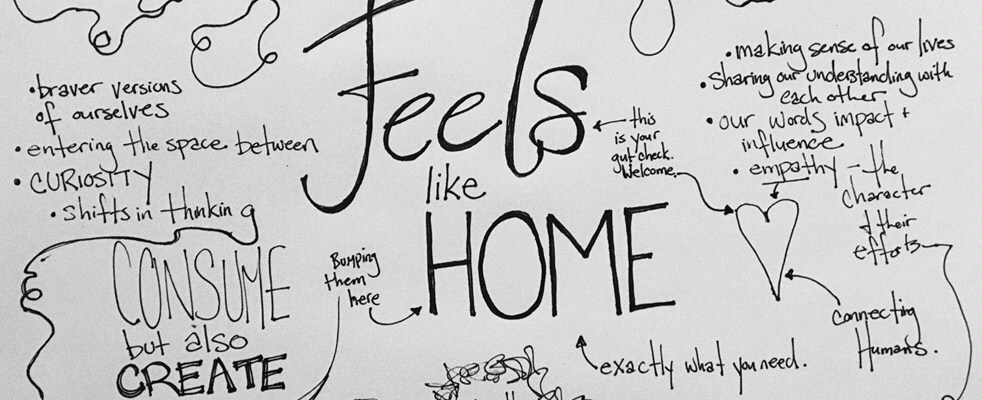 •braver versions
of ourselves
•entering the space between
•CURIOSITY
•shifts in thinking
CONSUME
but also
CREATE
Feels
like
HOME
Bumping
them
here
this
is your
gut check.
Welcome.
exactly what you need.
•making sense of our lives
•Sharing our understanding with
each other
•our words impact +
influence
•empathy – the
character
of their
efforts
connecting
Humans.